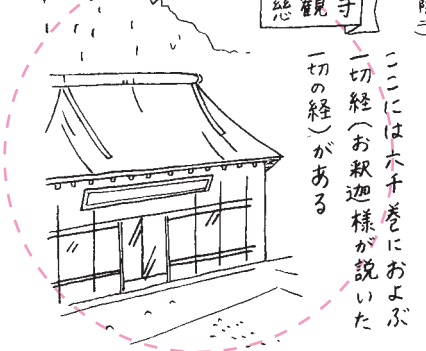 慈観寺
ここには六千巻におよぶ
一切経(お釈迦様が説いた
一切の経)がある